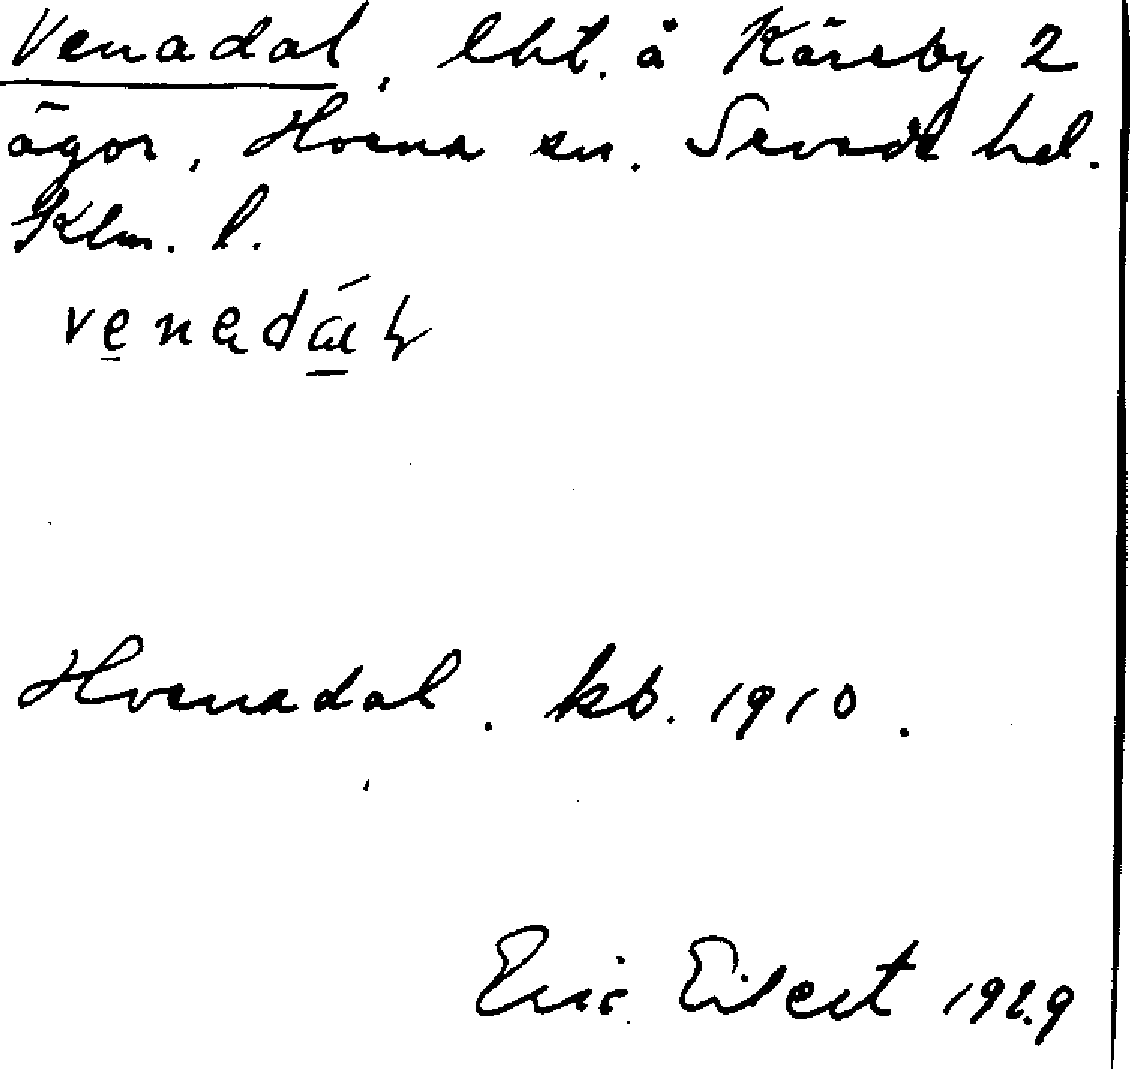 Venadal, lht. å Käreby 2
ägor, Hvena sn. Sevede hd.
Klm. l.
venadal
Hvenadal. kb. 1910.
Eric Eilert 1929